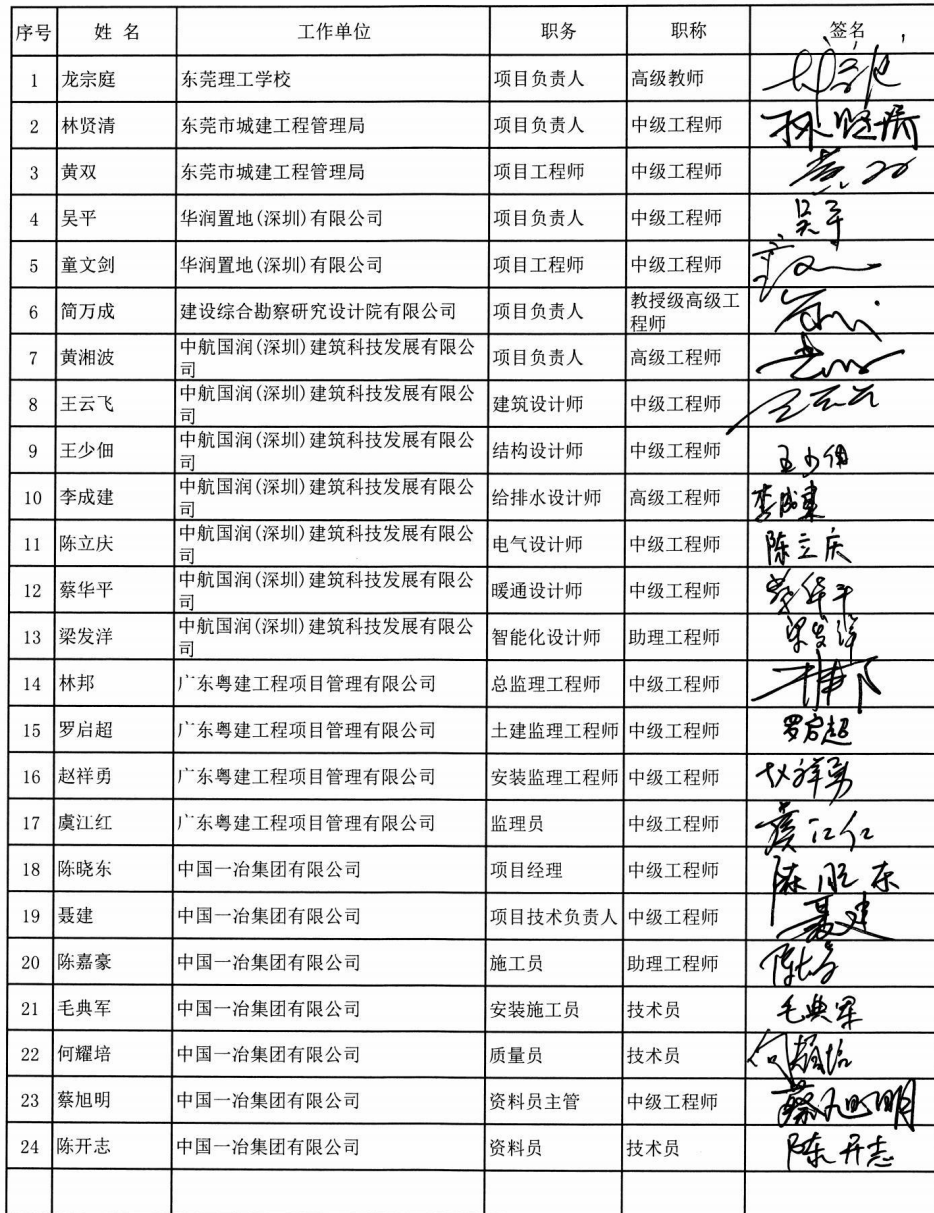 序号 姓 名 工作单位 职务 职称 签名
1 龙宗庭 东莞理工学校 项目负责人 高级教师
2 林贤清 东莞市城建工程管理局 项目负责人 中级工程师 林贤清
3 黄双 东莞市城建工程管理局 项目工程师 中级工程师 黄双
4 吴平 华润置地(深圳)有限公司 项目负责人 中级工程师 吴平
5 童文剑 华润置地(深圳)有限公司 项目工程师 中级工程师
6 简万成 建设综合勘察研究设计院有限公司 项目负责人 教授级高级工
程师
7 黄湘波 中航国润(深圳)建筑科技发展有限公
司 项目负责人 高级工程师
8 王云飞 中航国润(深圳)建筑科技发展有限公
司 建筑设计师 中级工程师 王云飞
9 王少佃 中航国润(深圳)建筑科技发展有限公
司 结构设计师 中级工程师 王少佃
10 李成建 中航国润(深圳)建筑科技发展有限公
司 给排水设计师 高级工程师 李成建
11 陈立庆 中航国润(深圳)建筑科技发展有限公
司 电气设计师 中级工程师 陈立庆
12 蔡华平 中航国润(深圳)建筑科技发展有限公
司 暖通设计师 中级工程师 蔡华平
13 梁发洋 中航国润(深圳)建筑科技发展有限公
司 智能化设计师 助理工程师 梁发洋
14 林邦 广东粤建工程项目管理有限公司 总监理工程师 中级工程师 林邦
15 罗启超 广东粤建工程项目管理有限公司 土建监理工程师 中级工程师 罗启超
16 赵祥勇 广东粤建工程项目管理有限公司 安装监理工程师 中级工程师 赵祥勇
17 虞江红 广东粤建工程项目管理有限公司 监理员 中级工程师 虞江红
18 陈晓东 中国一冶集团有限公司 项目经理 中级工程师 陈晓东
19 聂建 中国一冶集团有限公司 项目技术负责人 中级工程师 聂建
20 陈嘉豪 中国一冶集团有限公司 施工员 助理工程师 陈嘉豪
21 毛典军 中国一冶集团有限公司 安装施工员 技术员 毛典军
22 何耀培 中国一冶集团有限公司 质量员 技术员 何耀培
23 蔡旭明 中国一冶集团有限公司 资料员主管 中级工程师 蔡旭明
24 陈开志 中国一冶集团有限公司 资料员 技术员 陈开志